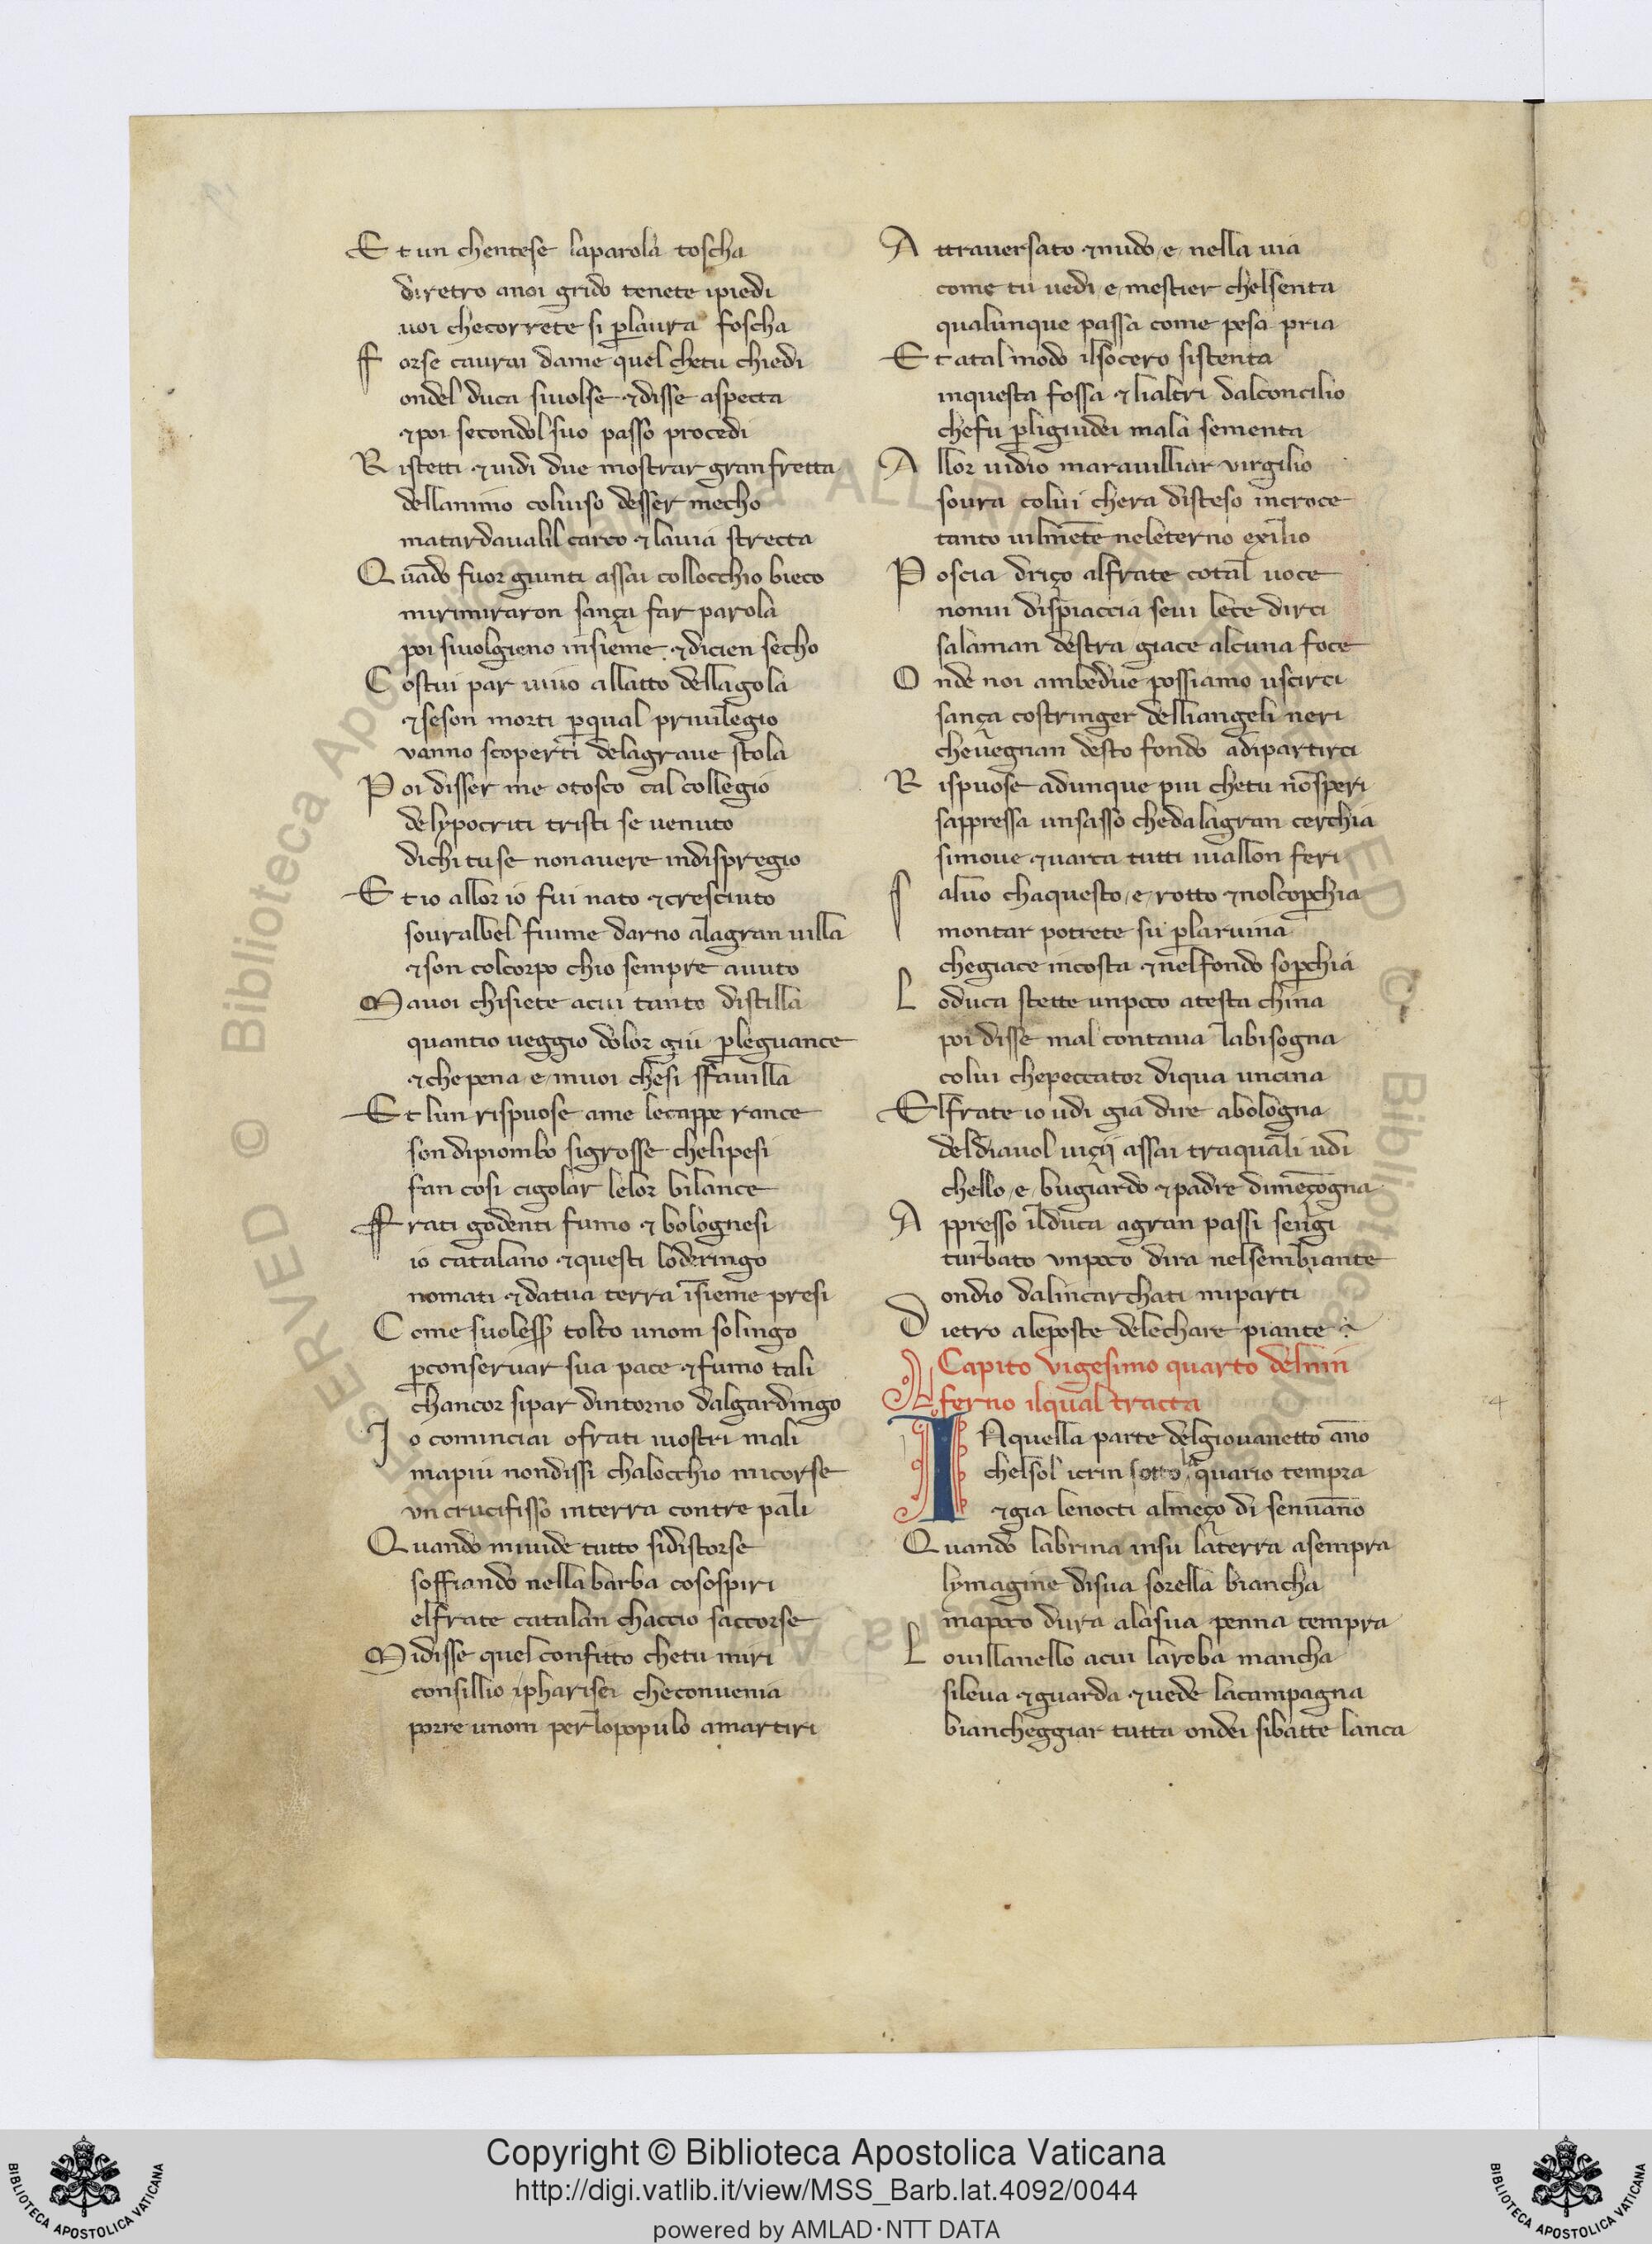 Et un chentese laparola toscha
diretro anoi grido tenete ipiedi
uoi checorrete si ꝑlaura foscha
Forse caurai dame quel chetu chiedi
ondel duca siuolse ⁊disse aspecta
⁊poi secondol suo passo procedi
Ristetti ⁊uidi due mostrar granfretta
dellanimo coluiso desser mecho
matardaualil carco ⁊lauia strecta
Quādo fuor giunti assai collocchio bieco
mirimiraron sança far parola
poi siuolgieno insieme ⁊dicien secho
Costui par uiuo allatto dellagola
⁊seson morti ꝑqual priuilegio
vanno scoperti delagraue stola
Poi disser me otosco cal collegio
delypocriti tristi se uenuto
dichi tu se nonauere indispregio
Et io allor io fui nato ⁊cresciuto
souralbel fiume darno alagran uilla
⁊son colcorpo chio sempre auuto
Mauoi chisiete acui tanto distilla
quantio ueggio dolor giu ꝑleguance
⁊chepena e inuoi chesi sfauilla
Et lun rispuose ame lecappe rance
son dipiombo sigrosse chelipesi
fan cosi cigolar lelor bilance
Frati godenti fumo ⁊ bolognesi
io catalano ⁊questi loderingo
nomati ⁊datua terra īsieme presi
Come suoless̄ tolto unom solingo
ꝑconseruar sua pace ⁊fumo tali
chancor sipar dintorno dalgardingo
Io cominciai ofrati iuostri mali
mapiu nondissi chalocchio micorse
vn crucifisso interra contre pali
Quando miuide tutto sidistorse
soffiando nella barba cosospiri
elfrate catalan chaccio saccorse
Midisse quel confitto chetu miri
consillio ipharisei checonuenia
porre unom perlopopulo amartiri
Attrauersato ⁊nudo e nella uia
come tu uedi e mestier chelsenta
qualunque passa come pesa pria
Et atal modo ilsocero sistenta
inquesta fossa ⁊lialtri dalconcilio
chefu ꝑligiudei mala sementa
Allor uidio marauilliar virgilio
soura colui chera disteso incroce
tanto uilmēte neleterno exilio
Poscia driço alfrate cotal uoce
nonui dispiaccia seui lece dirci
salaman destra giace alcuna foce
Onde noi ambedue possiamo uscirci
sança costringer delliangeli neri
cheuegnan desto fondo adipartirci
Rispuose adunque piu chetu nōsperi
sappressa unsasso chedalagran cerchia
simoue ⁊uarca tutti iuallon feri
Saluo chaquesto e rotto ⁊nolcoꝑchia
montar potrete su ꝑlaruina
chegiace incosta ⁊nelfondo soꝑchia
Loduca stette unpoco atesta china
poi disse mal contaua labisogna
colui chepeccator diqua uncina
Elfrate io udi gia dire abologna
deldiauol uiçij assai traquali udi
chello e bugiardo ⁊padre dimēçogna
Appresso ilduca agran passi sengi
turbato vnpoco dira nelsembiante
ondio dalincarchati miparti
Dietro aleposte delechare piante
Capito vigesimo quarto delnin
ferno ilqual tracta
INquella parte delgiouanetto āno
chelsol icrin sotto laquario tempra
⁊gia lenocti almeço di senuāno
Quando labrina insu laterra asempra
lymagine disua sorella biancha
mapoco dura alasua penna tempra
Louillanello acui laroba mancha
sileua ⁊guarda ⁊uede lacampagna
biancheggiar tutta ondei sibatte lanca
Copyright © Biblioteca Apostolica Vaticana
http://digi.vatlib.it/view/MSS_Barb.lat.4092/0044
powered by AMLAD·NTT DATA
BIBLIOTECA APOSTOLICA VATICANA
BIBLIOTECA APOSTOLICA VATICANA